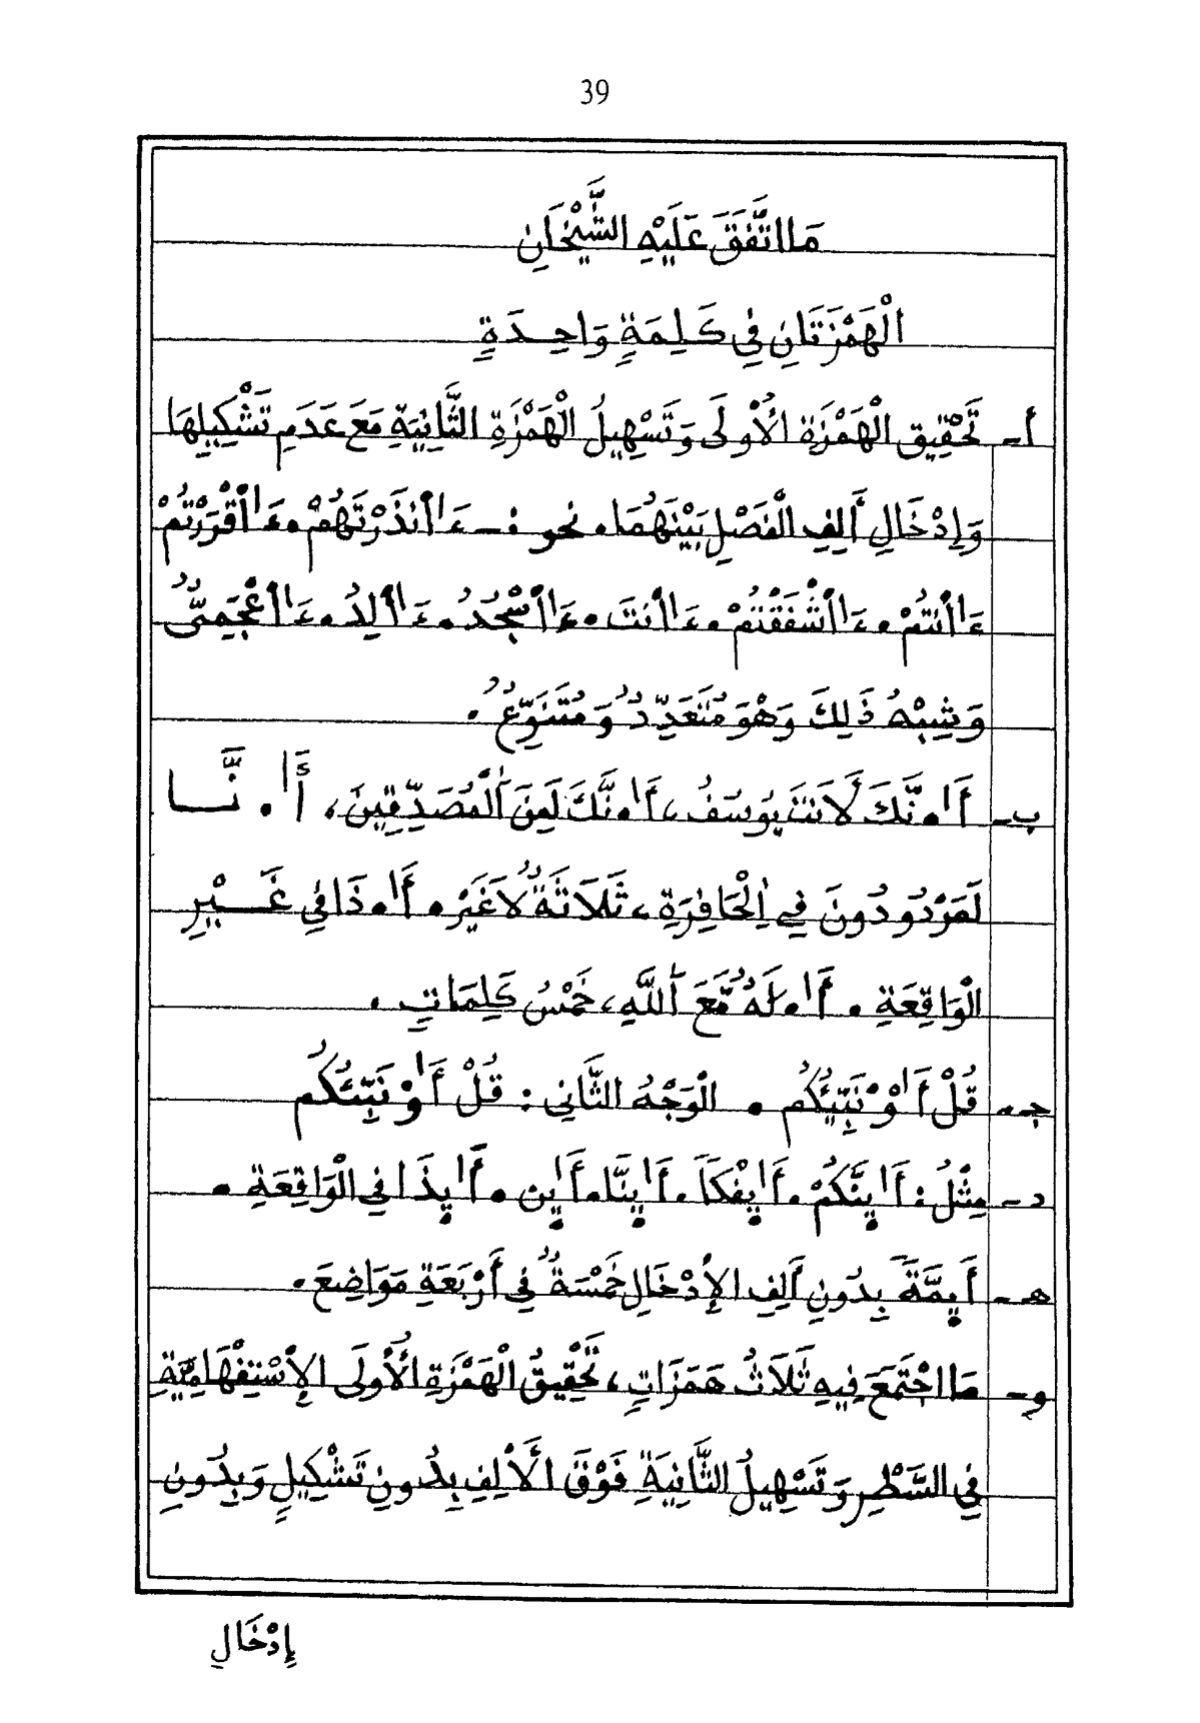 39
مَا اتَّفَقَ عَلَيْهِ الشَّيْخَانِ
الْهَمْزَتَانِ فِي كَلِمَةٍ وَاحِدَةٍ
أ - تَحْقِيقِ الْهَمْزَةِ الْأُولَى وَتَسْهِيلُ الْهَمْزَةِ الثَّانِيَةِ مَعَ عَدَمِ تَشْكِيلِهَا
وَإِدْخَالِ أَلِفِ الْفَصْلِ بَيْنَهُمَا. نحو :- ءَاانذَرْتَهُمْ. ءَااقْرَرْتُمْ
ءَاانتُمْ. ءَااشْفَقْتُمْ. ءَاانتَ. ءَااسْجُدُ. ءَاالِدُ. ءَااعْجَمِىٌّ
وَشِبْهُ ذَلِكَ وَهْوَ مُتَعَدِّدٌ وَمُتَنَوِّعٌ.
ب - أَا.نَّكَ لَأَنتَ يُوسُفُ، أَا.نَّكَ لَمِنَ اَلْمُصَدِّقِينَ، أَا.نَّا
لَمَرْدُودُونَ فِي اِلْحَافِرَةِ، ثَلَاثَةٌ لَا غَيْرُ. أَا.ذَا فِي غَيْرِ
الْوَاقِعَةِ. أَا.لَهٌ مَّعَ اَللَّهِ، خَمْسُ كَلِمَاتٍ.
ج - قُلْ أَاوْ نَبِّيُكُم. الْوَجْهُ الثَّانِي : قُلْ أَاوْ نَبِّئُكُم
د - مِثْلُ : أَايِنَّكُمْ. أَايِفْكاً. أَايِنَّا. أَايِن. أَايِذَا فِي الْوَاقِعَةِ.
هـ - أَيِمَّةً بِدُونِ أَلِفِ الإِدْخَالِ خَمْسَةٌ فِي أَرْبَعَةِ مَوَاضِعَ.
و - مَا اجْتَمَعَ فِيهِ ثَلَاثُ هَمَزَاتٍ، تَحْقِيقُ الْهَمْزَةِ الْأُولَى الإِسْتِفْهَامِيَّةِ
فِي السَّطْرِ وَتَسْهِيلُ الثَّانِيَةِ فَوْقَ الْأَلِفِ بِدُونِ تَشْكِيلٍ وَبِدُونِ
إِدْخَالِ